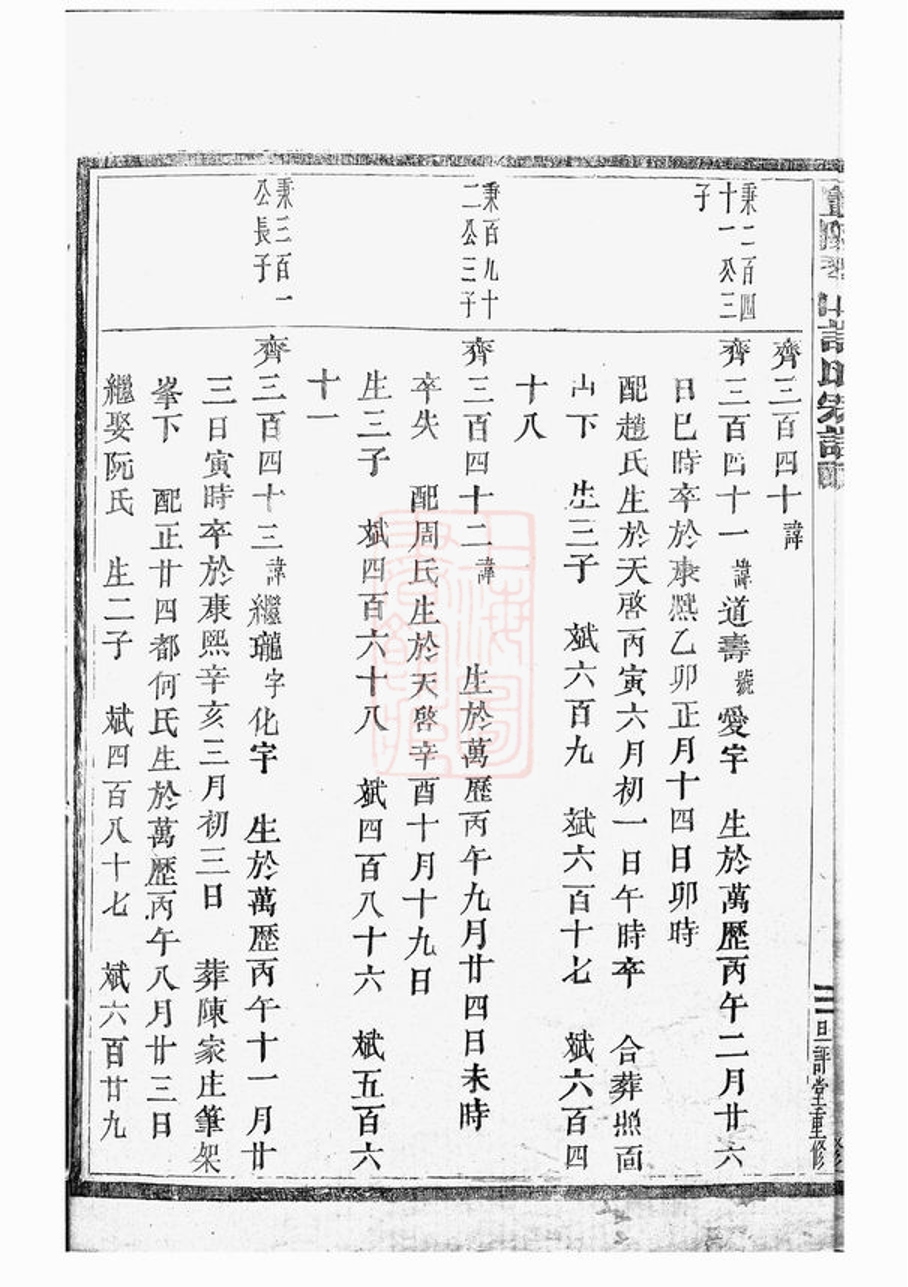 齊三百四十諱
秉二百四
十一公三
子
齊三百四十一諱道壽號愛宇 生於萬歷丙午二月廿六
日巳時卒於康熙乙卯正月十四日卯時
配趙氏生於天啓丙寅六月初一日午時卒 合葬照面
山下 生三子 斌六百九 斌六百十七 斌六百四
十八
秉百九十
二公三子
齊三百四十二諱 生於萬歷丙午九月廿四日未時
卒失 配周氏生於天啓辛酉十月十九日
生三子 斌四百六十八 斌四百八十六 斌五百六
十一
秉三百一
公長子
齊三百四十三諱繼瓏字化宇 生於萬歷丙午十一月廿
三日寅時卒於康熙辛亥三月初三日 葬陳家庄筆架
峯下 配正廿四都何氏生於萬歷丙午八月廿三日
繼娶阮氏 生二子 斌四百八十七 斌六百廿九
三 旦評堂重修
上海圖